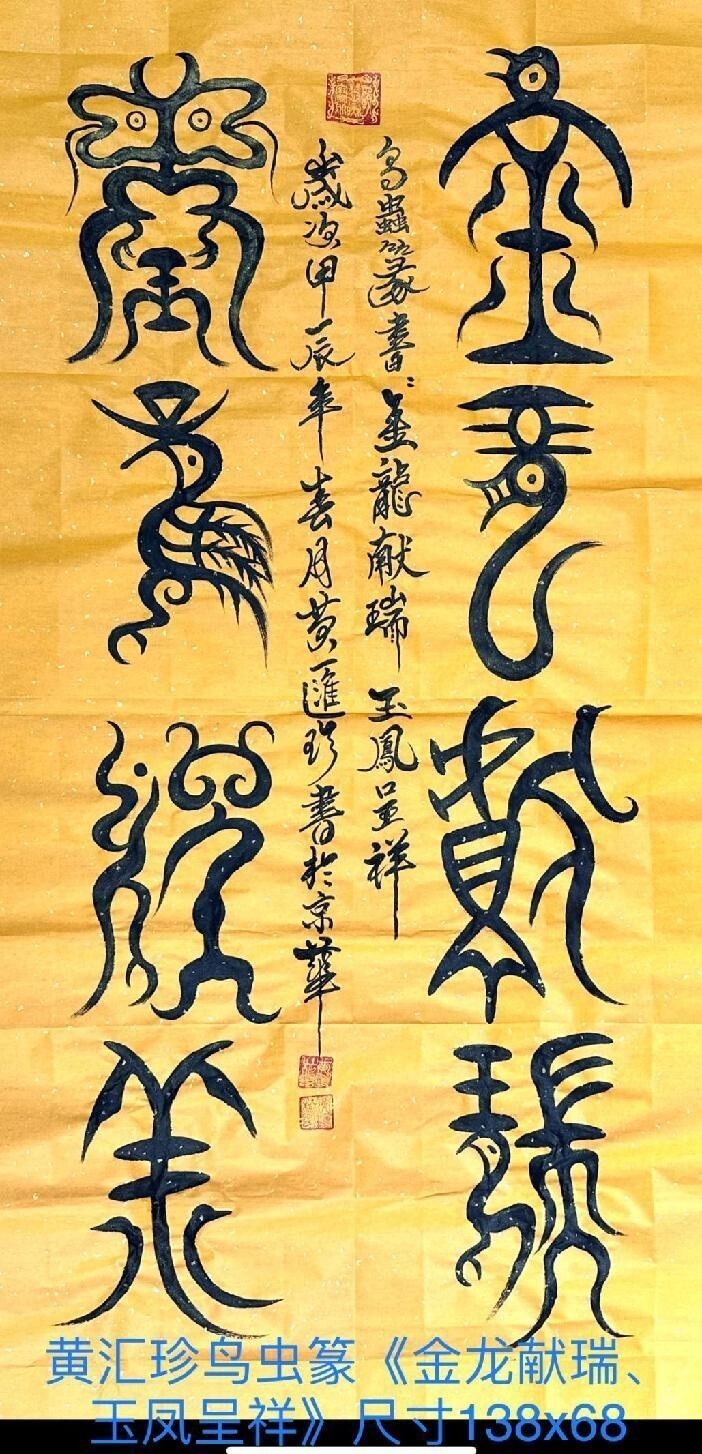 金龍獻瑞
鳥蟲篆書：金龍献瑞 玉鳳呈祥
歲次甲辰年春月黄匯珍書於京華
玉鳳呈祥
黄汇珍鸟虫篆《金龙献瑞、
玉凤呈祥》尺寸138x68